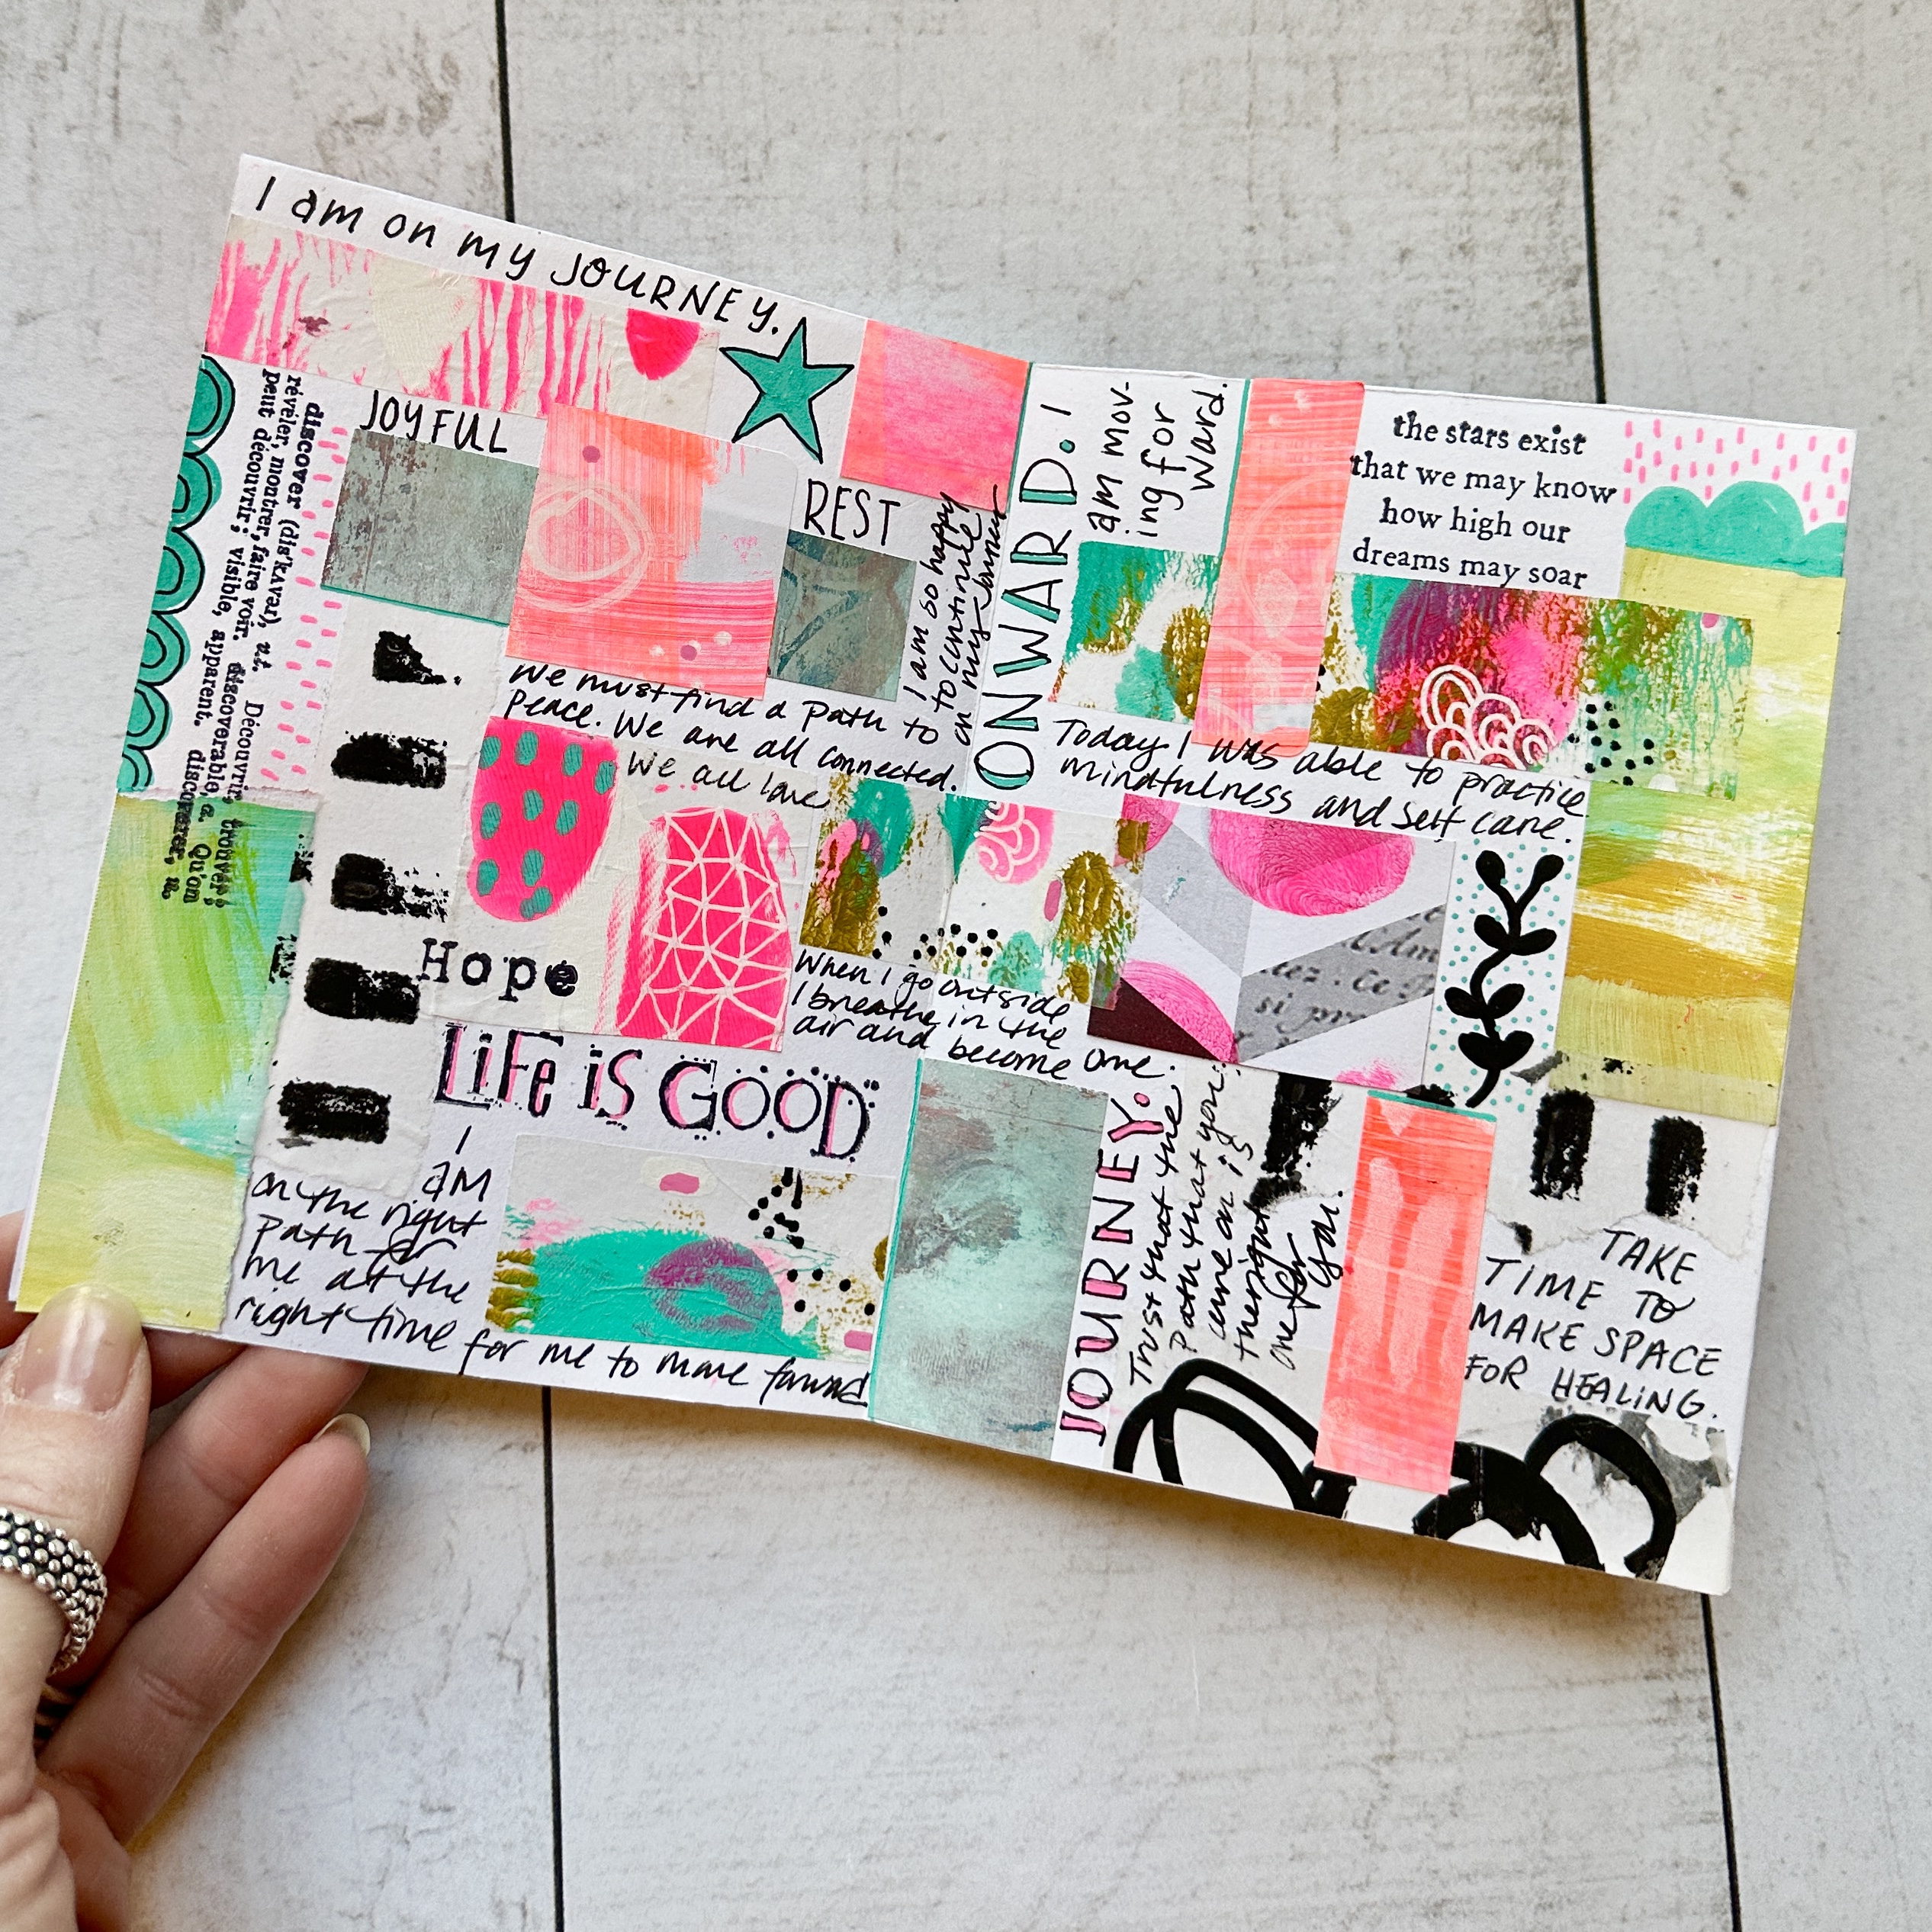 I am on my JOURNEY.
discover (dis'kʌvər), v.t. Découvrir, trouver;
révéler, montrer, faire voir. discoverable, a. Qu'on
peut découvrir; visible, apparent. discoverer, n.
JOYFUL
REST
I am so happy
to continue
on my journey
We must find a path to
peace. We are all connected.
We all love
Hope
When I go outside
I breathe in the
air and become one.
LiFe iS GOOD
I
am
on the right
path for
me at the
right time for me to move forward
ONWARD. I
am mov-
ing for
ward.
the stars exist
that we may know
how high our
dreams may soar
Today I was able to practice
mindfulness and self care.
Am
tez. Ce
si pr
JOURNEY.
Trust that the
path that you
are on is
the right
one for
you.
TAKE
TIME TO
MAKE SPACE
FOR HEALING.